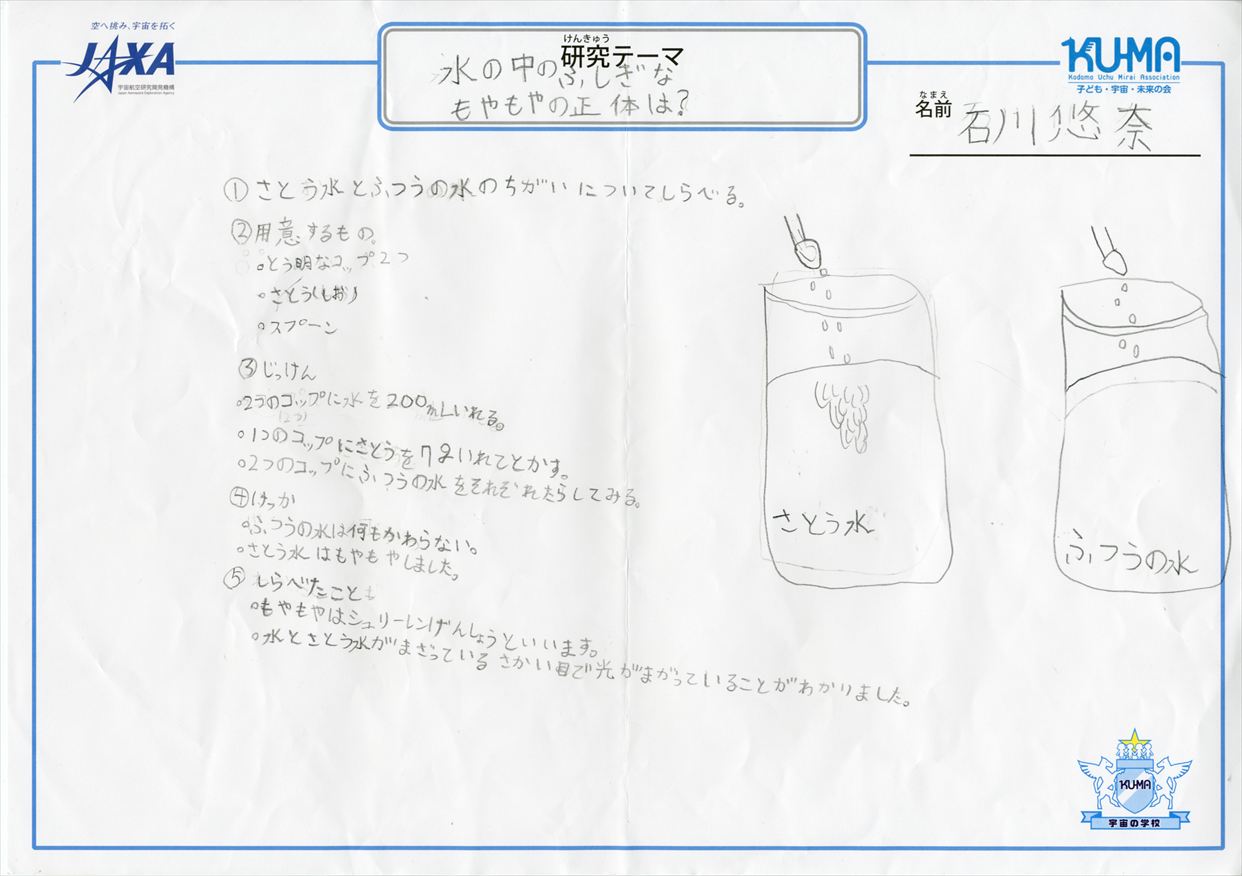 空へ挑み、宇宙を拓く
JAXA
宇宙航空研究開発機構
Japan Aerospace Exploration Agency
けんきゅう
研究テーマ
水の中のふしぎな
もやもやの正体は?
KU-MA
Kodomo Uchu Mirai Association
子ども・宇宙・未来の会
なまえ
名前
石川悠奈
①さとう水とふつうの水のちがいについてしらべる。
②用意するもの。
○とう明なコップ2つ
○さとう(しお)
○スプーン
③じっけん
○2つのコップに水を200mLいれる。
○1つのコップにさとうを7gいれてとかす。
○2つのコップにふつうの水をそれぞれたらしてみる。
④けっか
○ふつうの水は何もかわらない。
○さとう水はもやもやしました。
⑤しらべたこと
○もやもやはシュリーレンげんしょうといいます。
○水とさとう水がまざっているさかい目で光がまがっていることがわかりました。
さとう水
ふつうの水
KU-MA
宇宙の学校